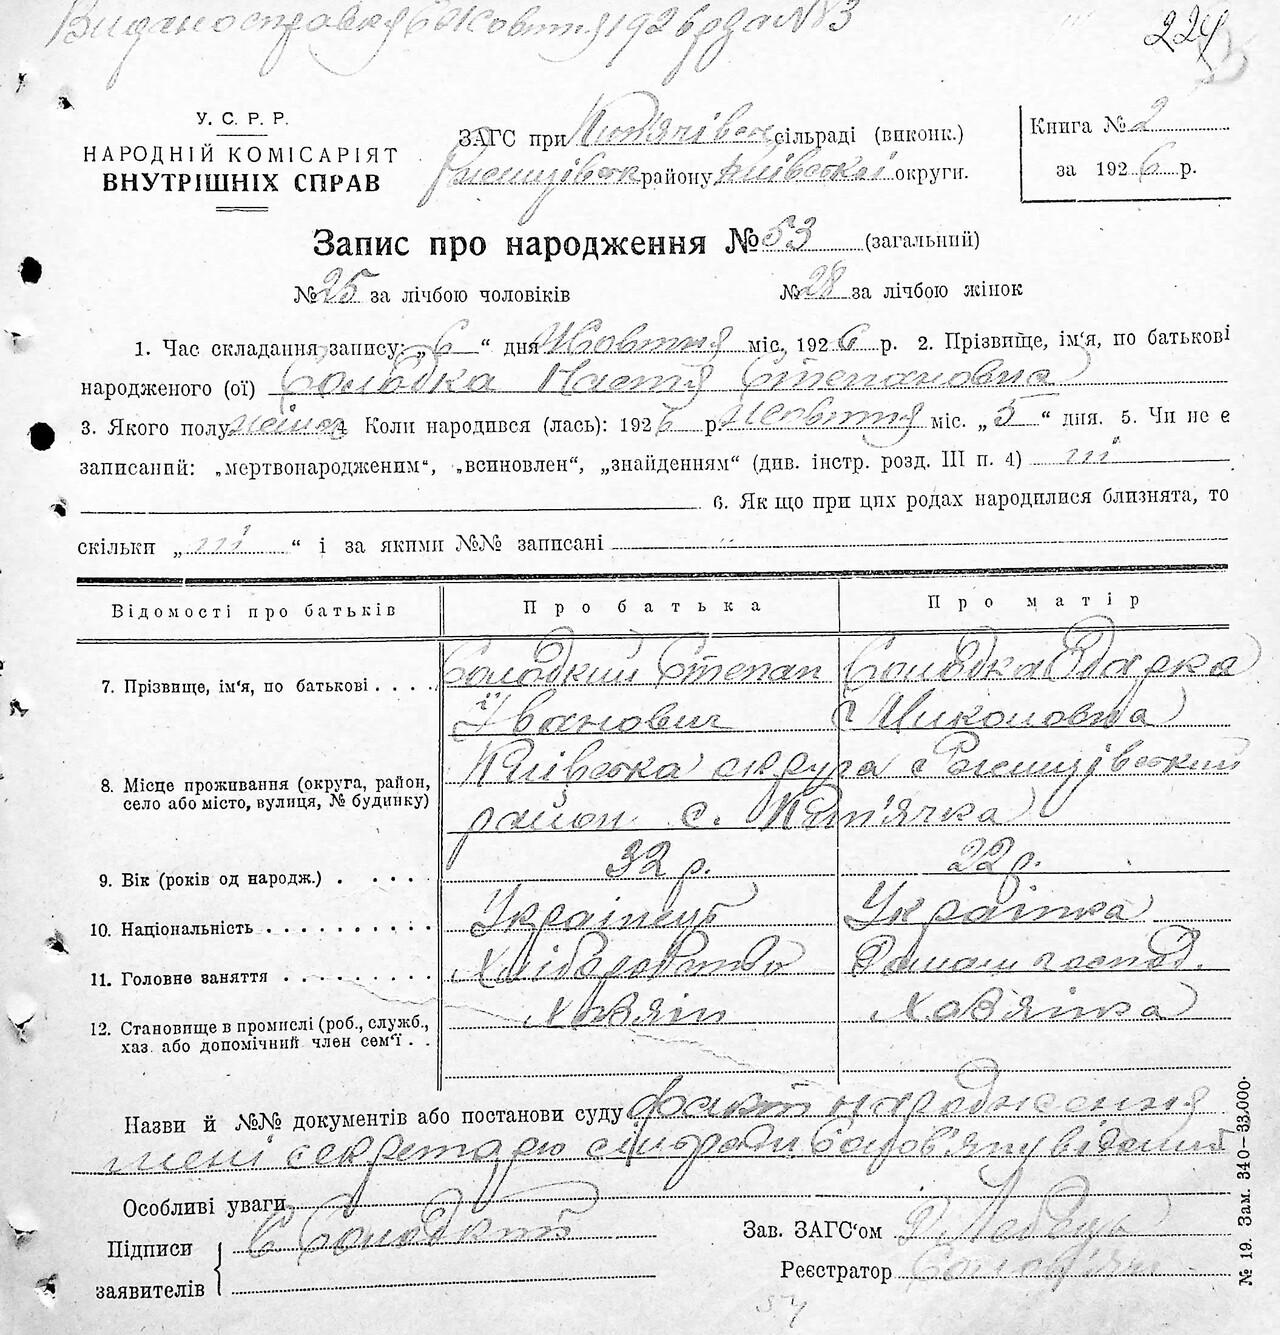 Видано справка 6 Жовтня 1926 р за № 53
224
У. С. Р. Р.
НАРОДНІЙ КОМІСАРІЯТ
ВНУТРІШНІХ СПРАВ
ЗАГС при сільраді (виконк.)
Ржищівськ району Київської округи.
Книга № 2
за 1926 р.
Запис про народження № 53 (загальний)
№ 25 за лічбою чоловіків № 28 за лічбою жінок
1. Час складання запису: „ 6 “ дня Жовтня міс. 1926 р. 2. Прізвище, ім‘я, по батькові
народженого (ої) Солодка Настя Степановна
3. Якого полу жіноч 4 Коли народився (лась): 1926 р. Жовтня міс. „ 5 “ дня. 5. Чи не є
записаний: „мертвонародженим“, „всиновлен“, „знайденням“ (див. інстр. розд. III п. 4) ні
6. Як що при цих родах народилися близнята, то
скільки „ ні “ і за якими №№ записані
Відомості про батьків Про батька Про матір
7. Прізвище, ім‘я, по батькові . . . . Солодкий Степан Іванович Солодка Одарка Миколовна
8. Місце проживання (округа, район,
село або місто, вулиця, № будинку) Київська округа Ржищівський
район с. Кип'ячка
9. Вік (років од народж.) . . . . . 32 р. 22 р.
10. Національність . . . . . . . . . . Українець Українка
11. Головне заняття . . . . . . . . . Хліборобство Домашн господ.
12. Становище в промислі (роб., служб.,
хаз. або допомічний член сем‘ї . . Хазяїн Хазяїнка
Назви й №№ документів або постанови суду факт народження
мені секретарю сільради Солов'яну відомий
Особливі уваги
Підписи
заявителів С Солодкий
Зав. ЗАГС‘ом Лебедь
Реєстратор Солов'ян
54
№ 19. Зам. 340–33.000.